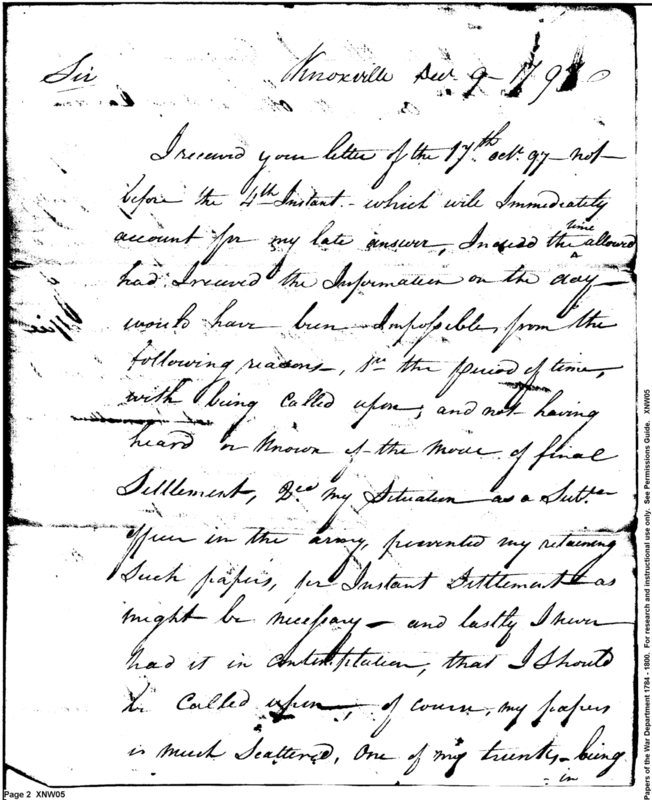 Sir Knoxville Decr 9 - 1797
I received your letter of the 17th octr. 97 - not
before the 4th Instant - which will Immediately
account for my late answer, Indeed the time allowed
had I received the Information on the day -
would have been Impossible, from the
following reasons, 1st the period of time,
with being Called upon, and not having
heard or Known of the mode of final
Settlement, 2nd my Situation as a Subtn
officer in the army, prevented my retaining
Such papers, for Instant Settlement as
might be necessary - and lastly I never
had it in contemplation, that I Should
be Called upon, of course, my papers
is much Scattered, One of my trunks - being
- in
Page 2 XNW05
Papers of the War Department 1784 - 1800. For research and instructional use only. See Permissions Guide. XNW05